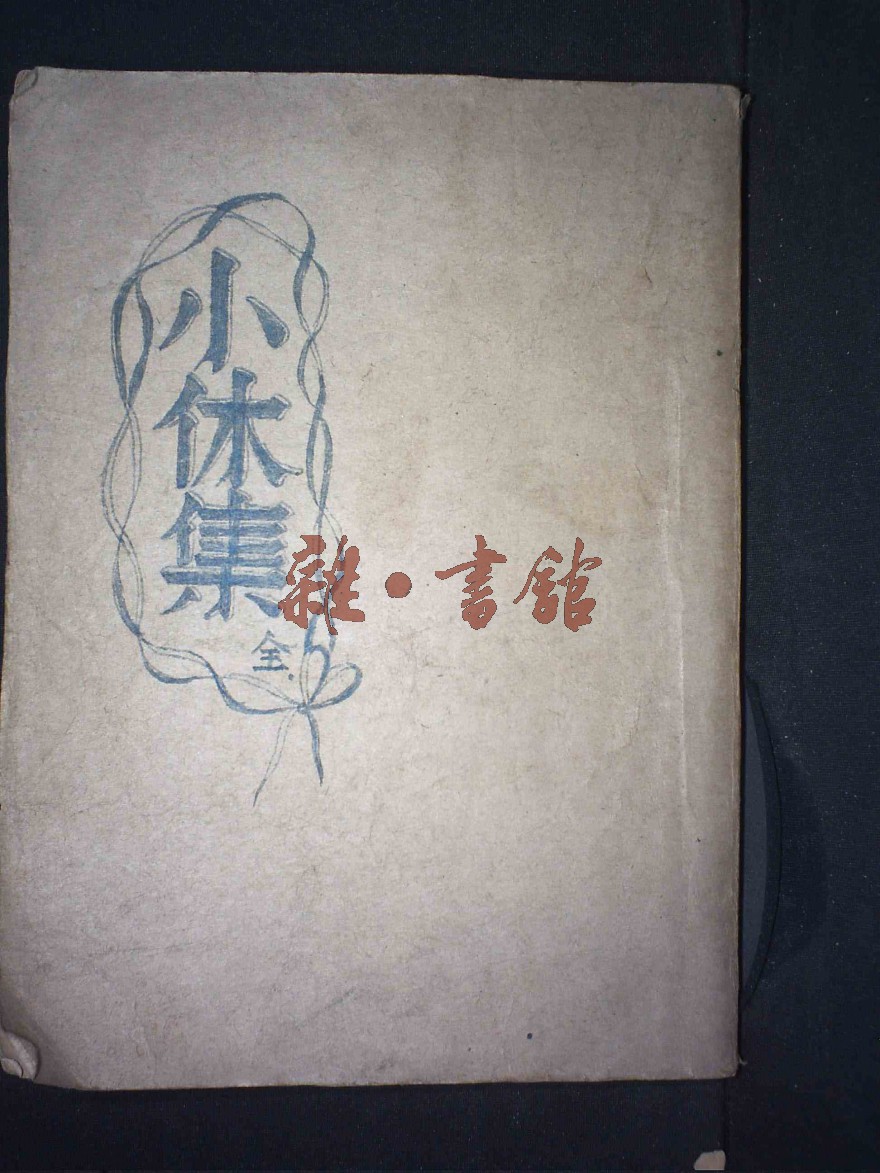 小休集
全
雜·書舘